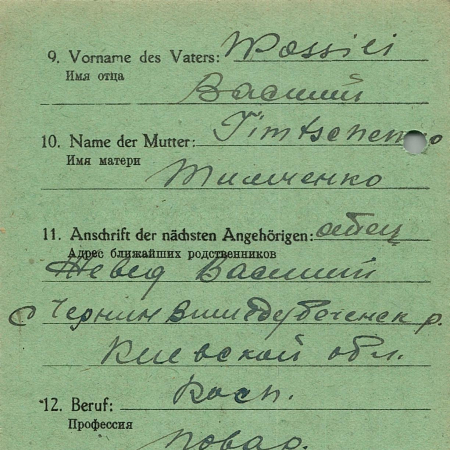 9. Vorname des Vaters: Wassili
Имя отца
Василий
10. Name der Mutter: Timtschenko
Имя матери
Тимченко
11. Anschrift der nächsten Angehörigen: отец
Адрес ближайших родственников
Василий
с
Киевской обл.
12. Beruf: Koch.
Профессия
повар.